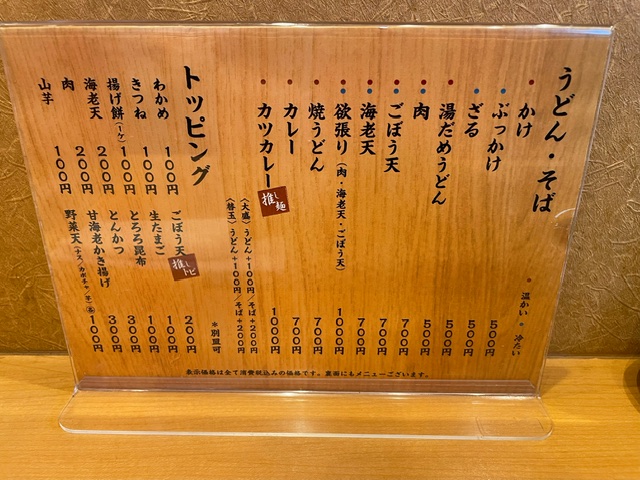 うどん・そば
温かい 冷たい
かけ 500円
ぶっかけ 500円
ざる 500円
湯だめうどん 500円
肉 700円
ごぼう天 700円
海老天 700円
欲張り(肉・海老天・ごぼう天) 1000円
焼うどん 700円
カレー 700円
カツカレー 推し麺 1000円
〈大盛〉うどん+100円/そば+200円
〈替玉〉うどん+100円/そば+200円
トッピング
＊別皿可
わかめ 100円
きつね 100円
揚げ餅(1ケ) 100円
海老天 200円
肉 200円
山芋 100円
ごぼう天 推しトピ 200円
生たまご 100円
とろろ昆布 100円
とんかつ 300円
甘海老かき揚げ 300円
野菜天(ナス/カボチャ/芋) 各100円
表示価格は全て消費税込みの価格です。裏面にもメニューございます。